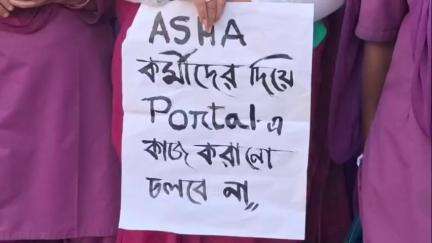 ASHA
কর্মীদের দিয়ে
Portal-এ
কাজ করানো
চলবে না,,